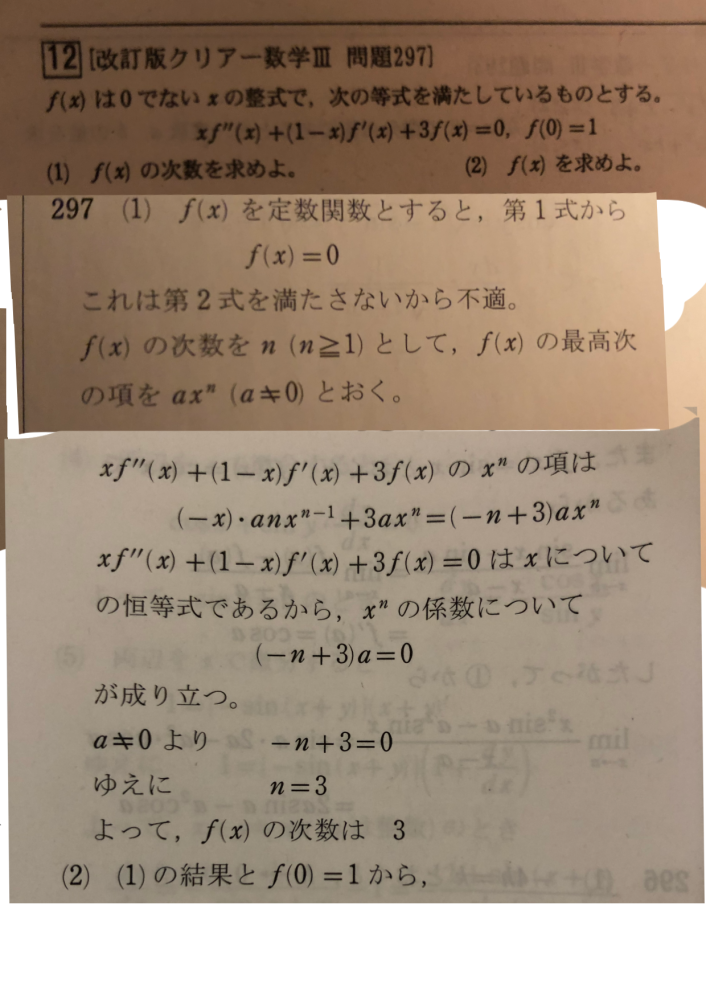 12 [改訂版クリアー数学Ⅲ 問題297]
f(x) は0でない x の整式で，次の等式を満たしているものとする。
xf″(x)+(1−x)f′(x)+3f(x)=0, f(0)=1
(1) f(x) の次数を求めよ。 (2) f(x) を求めよ。
297 (1) f(x) を定数関数とすると，第1式から
f(x)=0
これは第2式を満たさないから不適。
f(x) の次数を n (n≧1) として，f(x) の最高次
の項を axⁿ (a≠0) とおく。
xf″(x)+(1−x)f′(x)+3f(x) の xⁿ の項は
(−x)・anxⁿ⁻¹+3axⁿ=(−n+3)axⁿ
xf″(x)+(1−x)f′(x)+3f(x)=0 は x について
の恒等式であるから，xⁿ の係数について
(−n+3)a=0
が成り立つ。
a≠0 より −n+3=0
ゆえに n=3
よって，f(x) の次数は 3
(2) (1)の結果と f(0)=1 から，